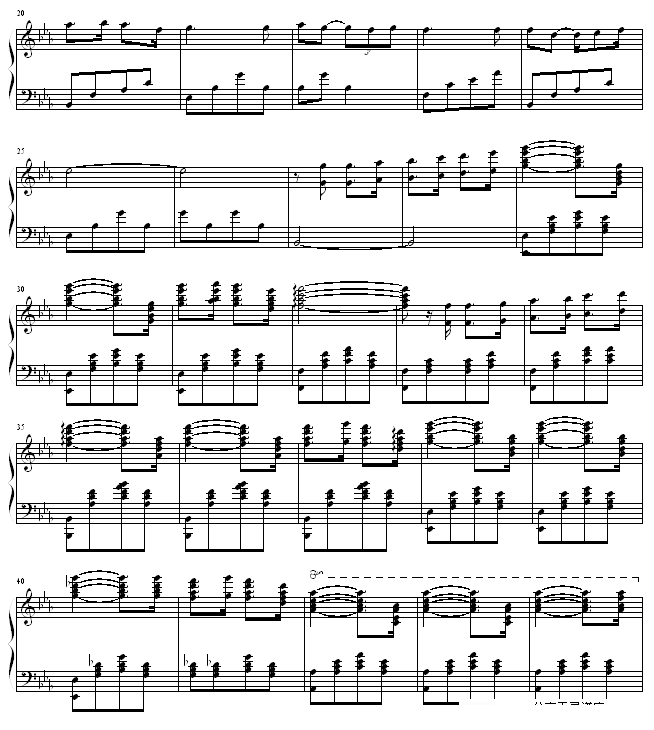 20
25
30
35
40
8